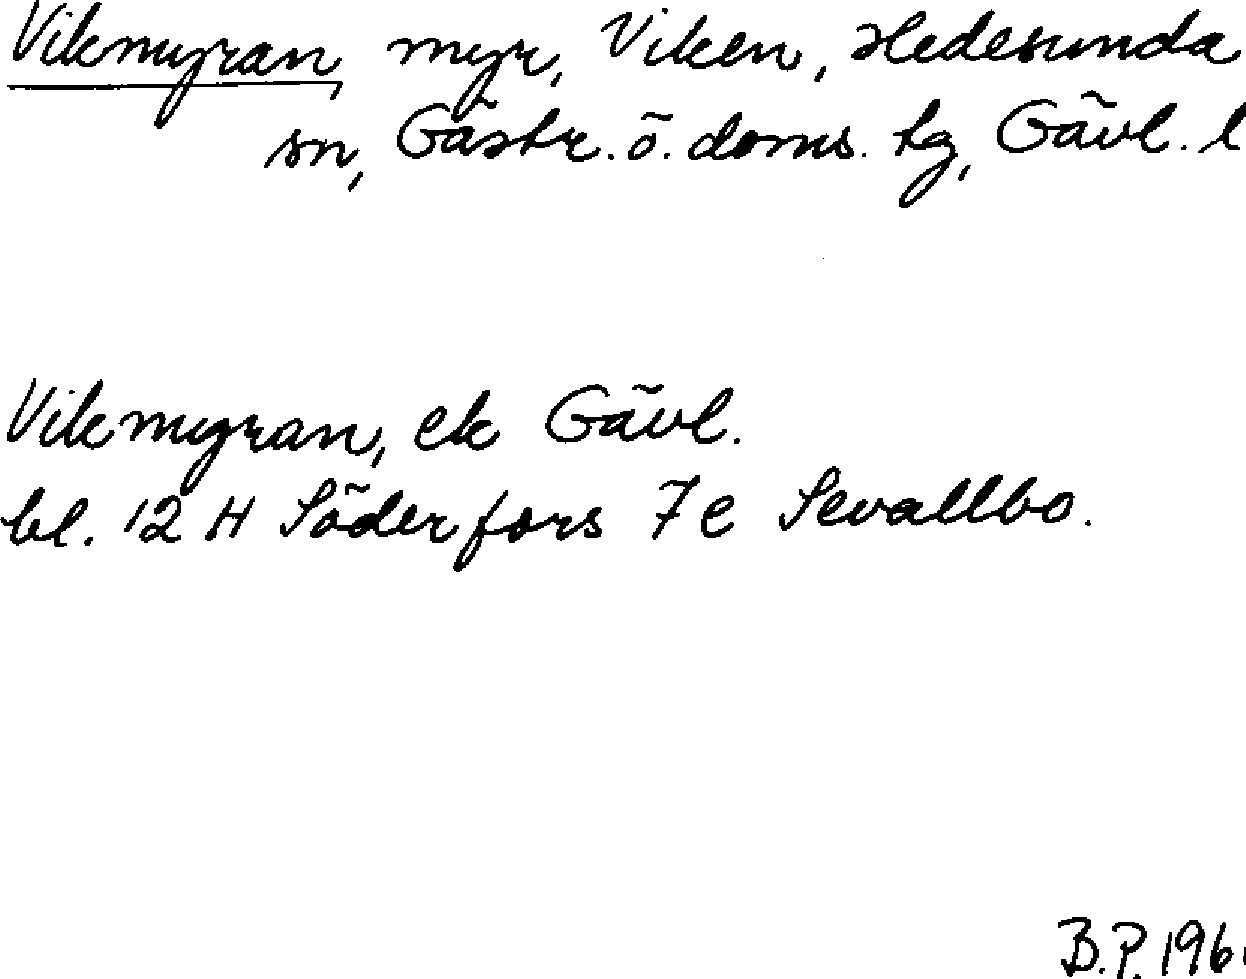 Vikmyran, myr, Viken, Hedesunda
sn, Gästr. ö. doms. tg, Gävl. l
Vikmyran, ek Gävl.
bl. 12 H Söderfors 7 e Sevallbo.
B.P. 196